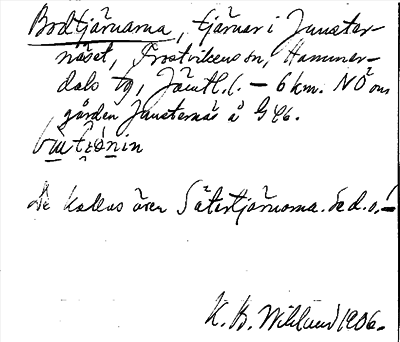 Bodtjärnarna, tjärnar i Junster-
näset, Prostvikens sn, Hammer-
dals tg, Jämtl. l. — 6 km. NÖ om
gården Junsternäs å G46.
De kallas även Sätertjärnarna. Se d. o.! —
K. B. Wiklund 1906.